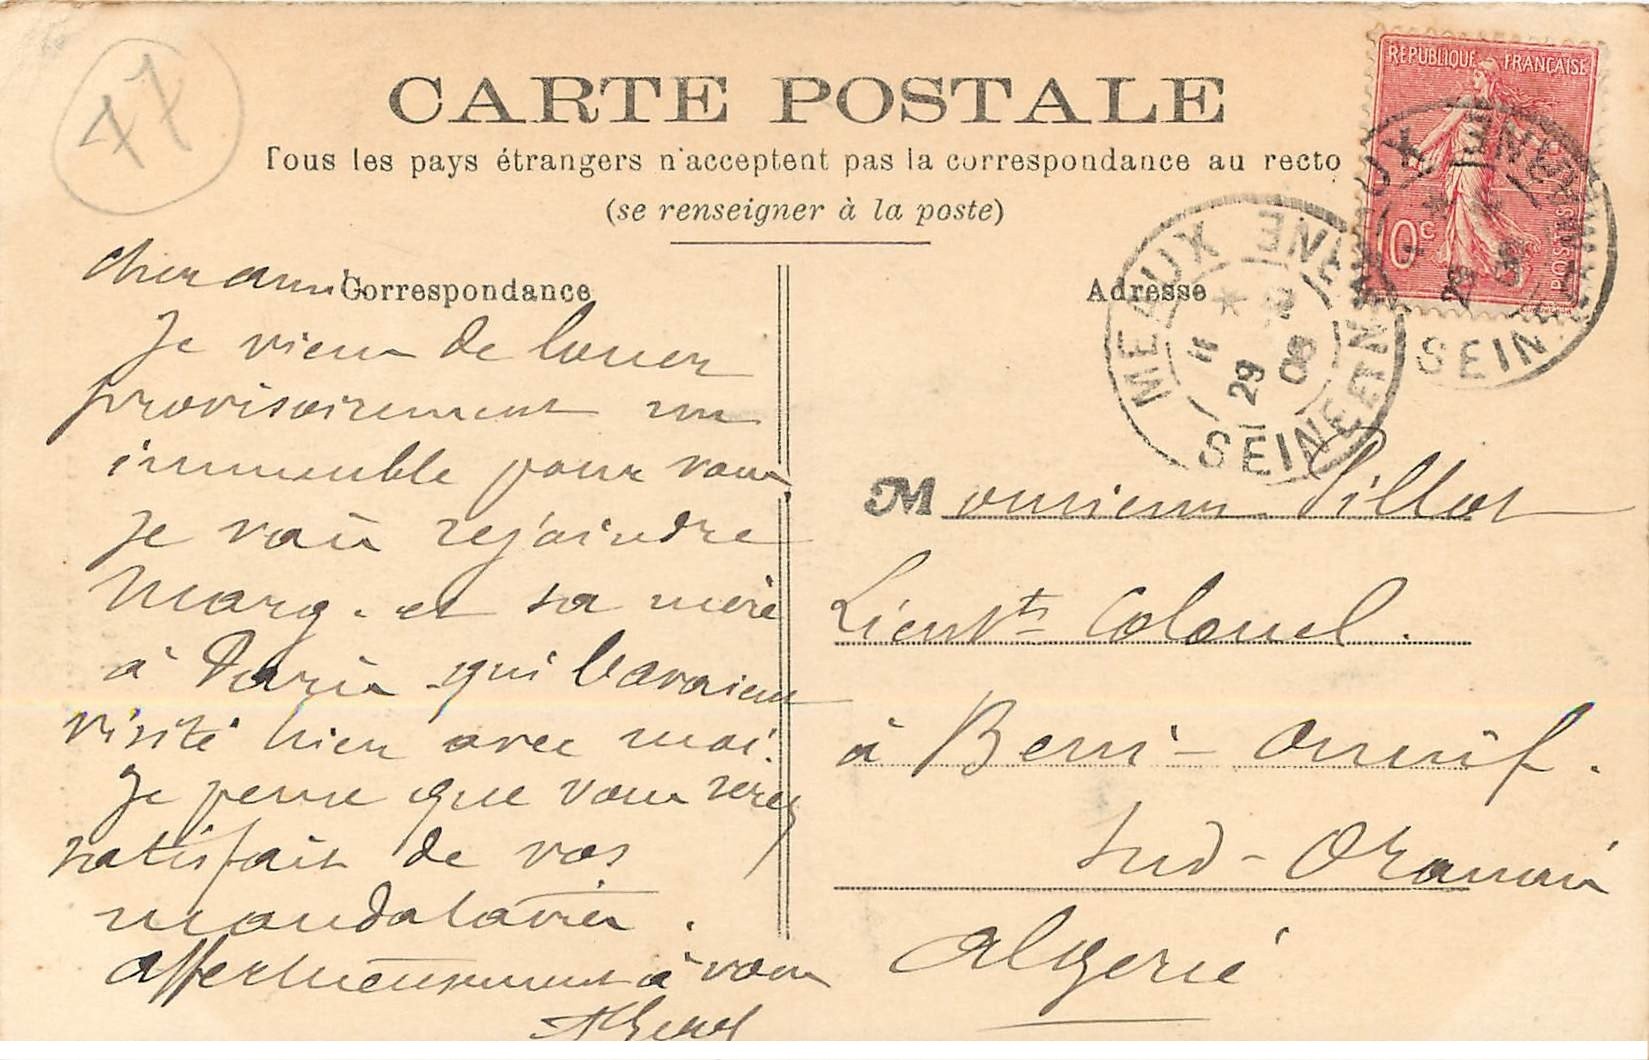 47
CARTE POSTALE
Tous les pays étrangers n'acceptent pas la correspondance au recto
(se renseigner à la poste)
RÉPUBLIQUE FRANÇAISE
10c
POSTES
MEAUX SEINE ET MARNE
29
08
Correspondance
Cher ami
Je viens de louer
provisoirement un
immeuble pour vous
Je vais rejoindre
Marg. et sa mère
à Paris qui l'avaient
visité hier avec moi.
Je pense que vous serez
satisfait de vos
mandataires.
Affectueusement à vous
Adresse
Monsieur Pillot
Lieutt Colonel.
à Beni-Ounif.
Sud-Oranais
Algérie